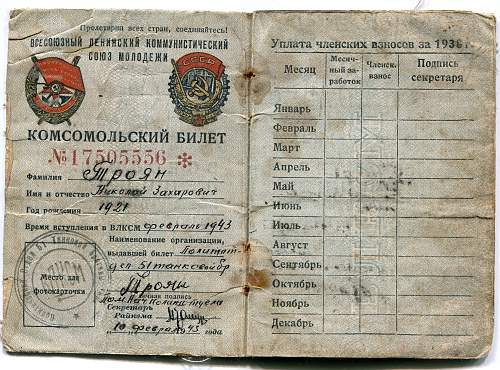 Пролетарии всех стран, соединяйтесь!
ВСЕСОЮЗНЫЙ ЛЕНИНСКИЙ КОММУНИСТИЧЕСКИЙ
СОЮЗ МОЛОДЕЖИ
СССР
КОМСОМОЛЬСКИЙ БИЛЕТ
№ 17505556 *
Фамилия Троян
Имя и отчество Николай Захарович
Год рождения 1921
Время вступления в ВЛКСМ февраль 1943
Наименование организации,
выдавшей билет Политот
дел 51 танковой бр
Место для
фотокарточки
Личная подпись
Секретарь
Райкома
"10" февраля 43 года
Уплата членских взносов за 1938 г.
Месяц
Месячный заработок
Членск. взнос
Подпись секретаря
Январь
Февраль
Март
Апрель
Май
Июнь
Июль
Август
Сентябрь
Октябрь
Ноябрь
Декабрь